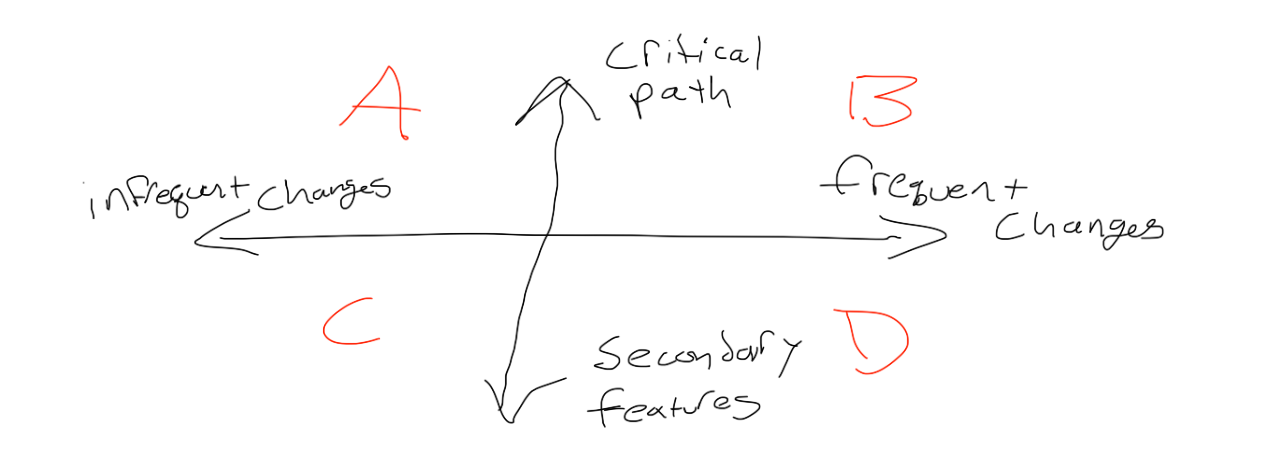 Critical
path
A
B
infrequent changes
frequent
changes
C
D
Secondary
features